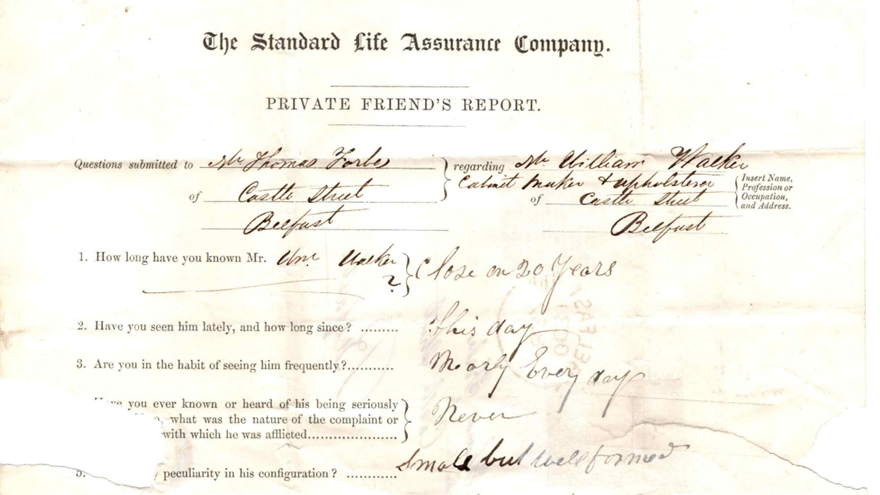 The Standard Life Assurance Company.
PRIVATE FRIEND'S REPORT.
Questions submitted to Mr Thomas Forbes } regarding Mr William Walker
Cabinet Maker & Upholsterer { Insert Name, Profession or Occupation, and Address.
of Castle Street of Castle Street
Belfast Belfast
1. How long have you known Mr. Wm Walker ? } Close on 20 Years
2. Have you seen him lately, and how long since? ......... This day
3. Are you in the habit of seeing him frequently?........... Nearly Every day
you ever known or heard of his being seriously
what was the nature of the complaint or } Never
with which he was afflicted......................
5. peculiarity in his configuration? ............ Small but well formed